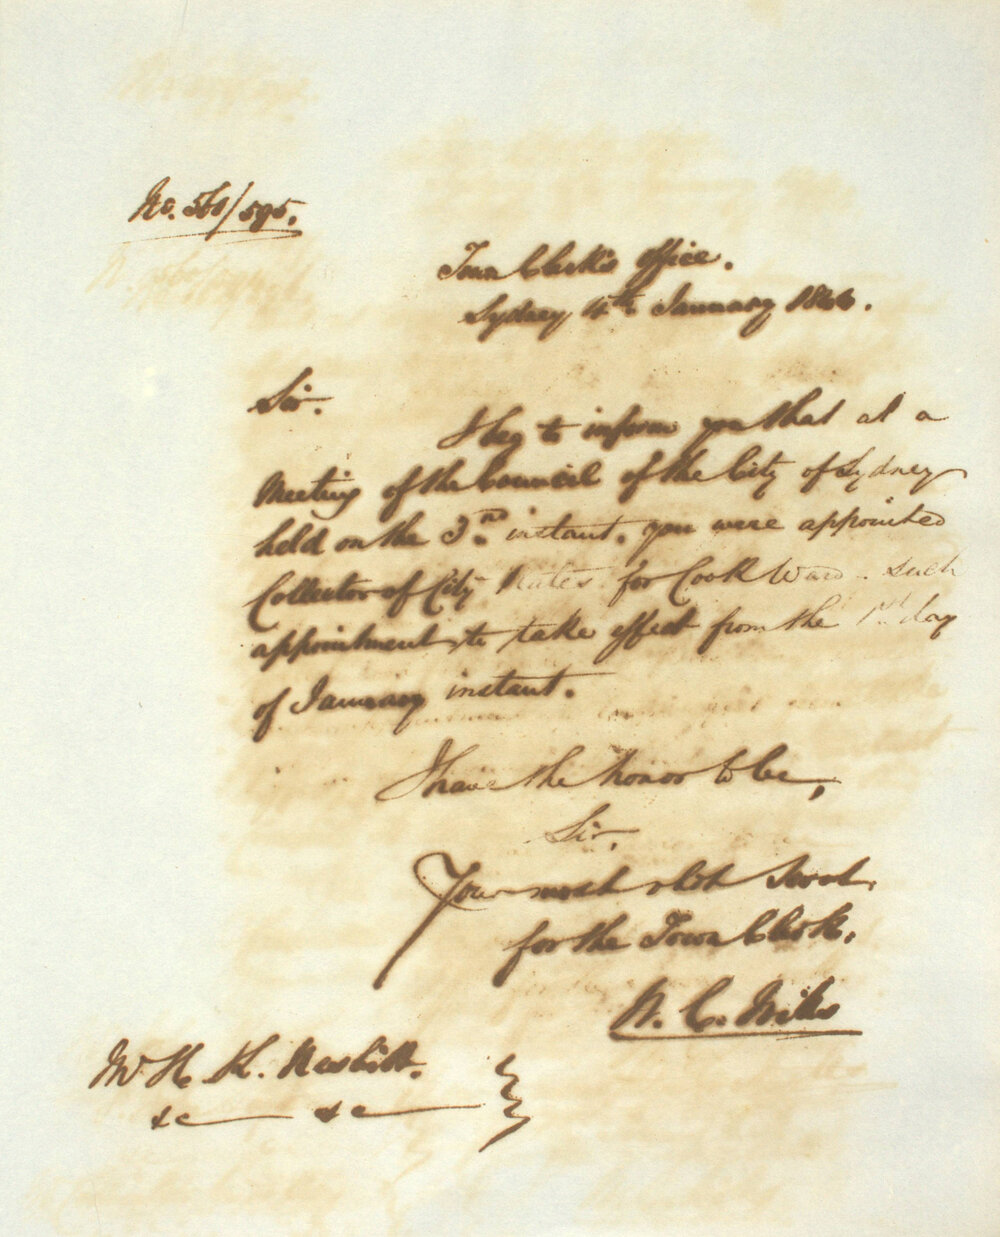 No. 560/595.
Town Clerk's Office.
Sydney 4th January 1866.
Sir.
I beg to inform you that at a
Meeting of the Council of the City of Sydney
held on the 3rd. instant. you were appointed
Collector of City Rates for Cook Ward. such
appointment to take effect from the 1st day
of January instant.
I have the honor to be,
Sir,
Your most obt Servt.
for the Town Clerk.
W. C. Wills
Mr H. K. Nesbitt.
&c &c